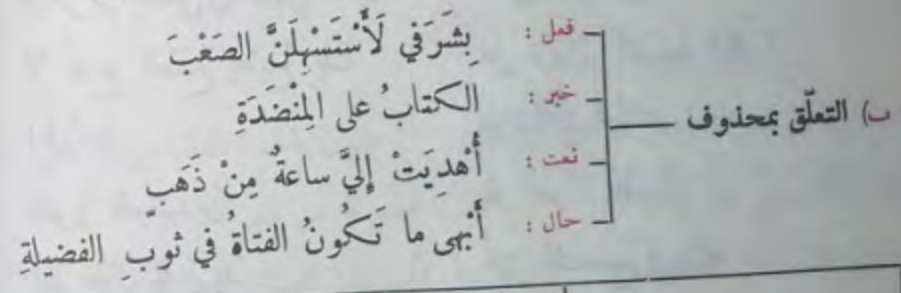 ب) التعلّق بمحذوف
فعل : بِشَرَفي لَأَسْتَسْهِلَنَّ الصَعْبَ
خبر : الكتابُ على المِنْضَدَةِ
نعت : أُهْدِيَتْ إِليَّ ساعةٌ مِنْ ذَهَبٍ
حال : أَبْهى ما تَكُونُ الفتاةُ في ثوبِ الفضيلةِ